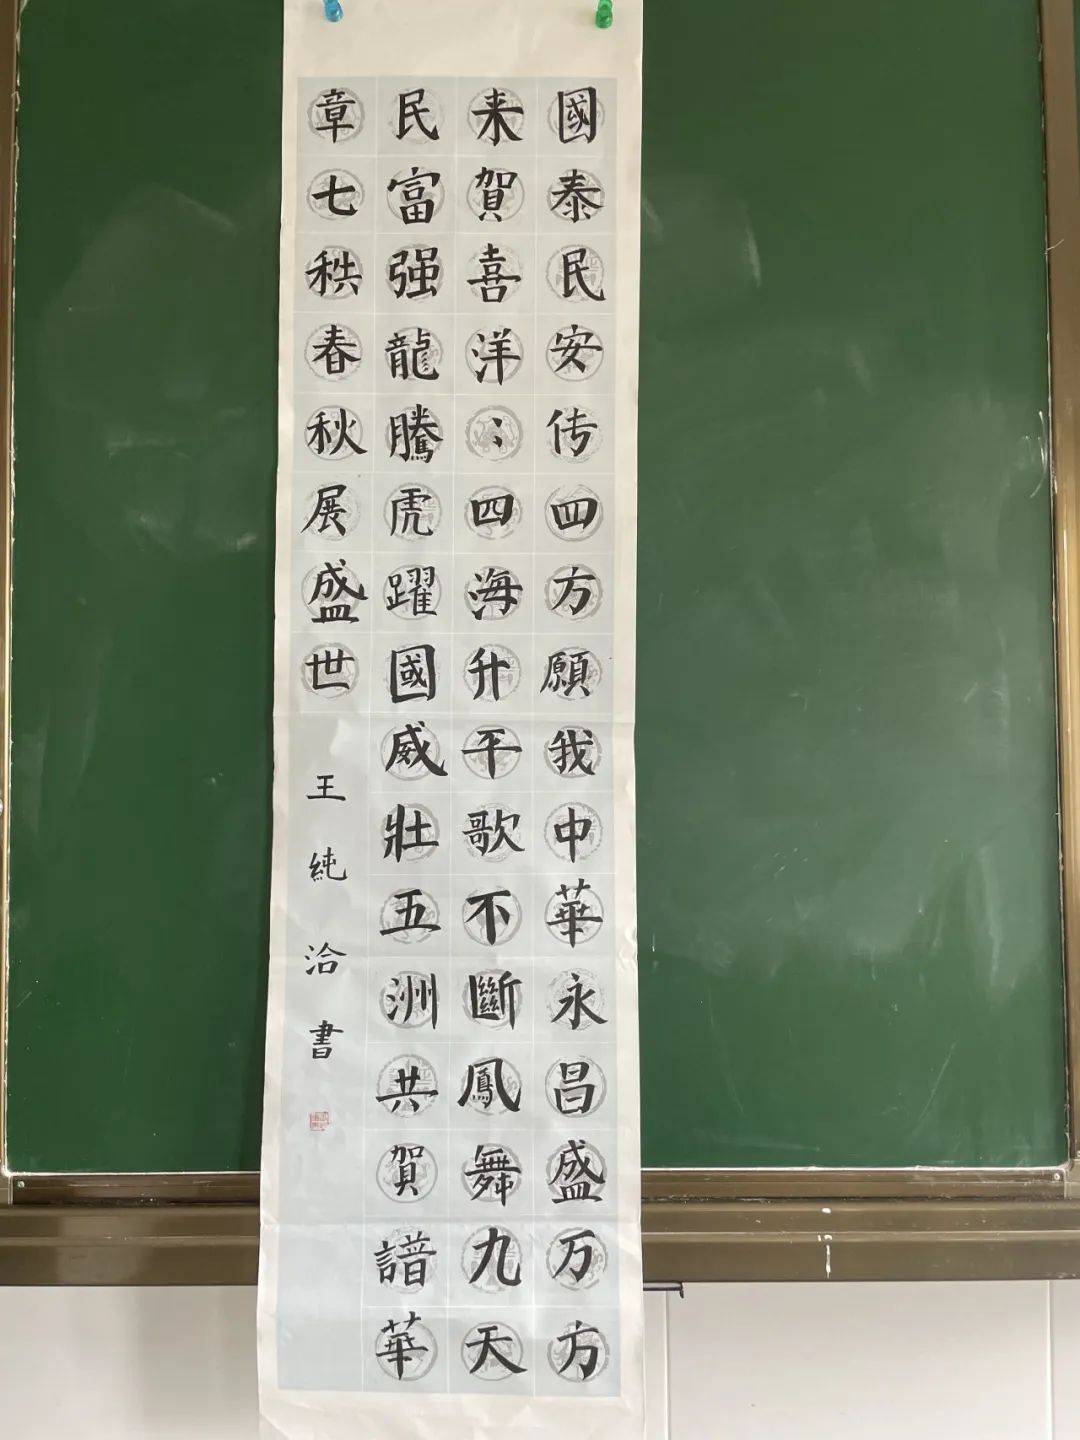 國泰民安传四方願我中華永昌盛万方
来賀喜洋〻四海升平歌不斷鳳舞九天
民富强龍騰虎躍國威壯五洲共賀譜華
章七秩春秋展盛世
王純洽書